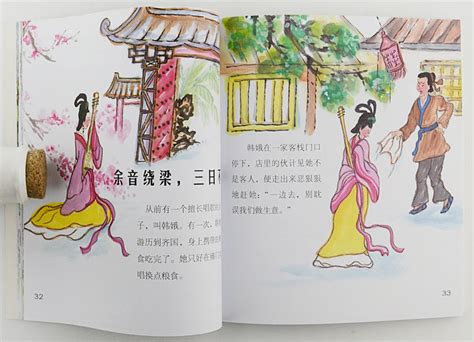 余音绕梁，三日
从前有一个擅长唱歌的
子，叫韩娥。有一次，
游历到齐国，身上携带的
食吃完了。她只好在
唱换点粮食。
32
韩娥在一家客栈门口
停下，店里的伙计见她不
是客人，便走出来恶狠狠
地赶她：“一边去，别耽
误我们做生意。”
33